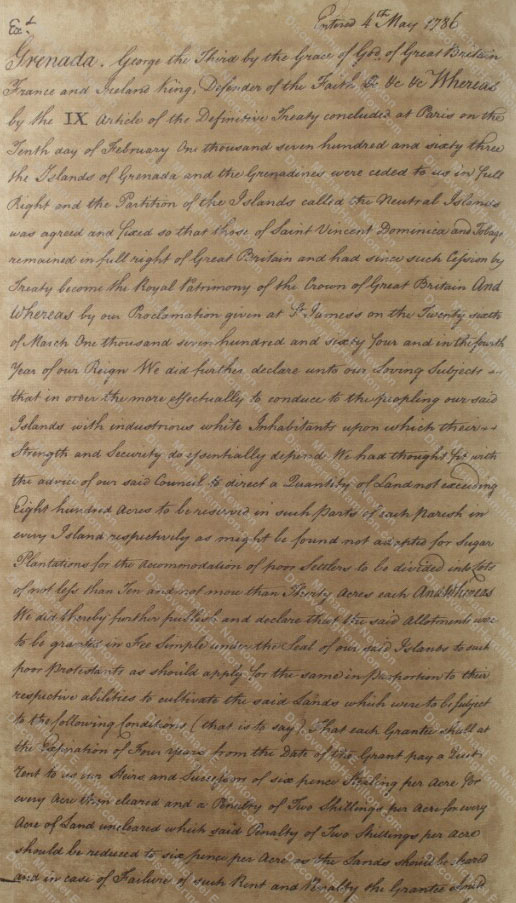 Exd. Entered 4th May 1786
Grenada. George the Third by the Grace of God, of Great Britain
France and Ireland King, Defender of the Faith &c &c &c Whereas
by the IX Article of the Definitive Treaty concluded at Paris on the
Tenth day of February One thousand seven hundred and sixty three
the Islands of Grenada and the Grenadines were ceded to us in full
Right and the Partition of the Islands called the Neutral Islands
was agreed and fixed so that those of Saint Vincent Dominica and Tobago
remained in full right of Great Britain and had since such Cession by
Treaty become the Royal Patrimony of the Crown of Great Britain And
Whereas by our Proclamation given at St. James's on the Twenty sixth
of March One thousand seven hundred and sixty four and in the fourth
Year of our Reign We did further declare unto our Loving Subjects
that in order the more effectually to conduce to the peopling our said
Islands with industrious white Inhabitants upon which their
Strength and Security do essentially depend We had thought fit with
the advice of our said Council to direct a Quantity of Land not exceeding
Eight hundred Acres to be reserved in such parts of each Parish in
every Island respectively as might be found not adapted for Sugar
Plantations for the accommodation of poor Settlers to be divided into Lots
of not less than Ten and not more than Thirty Acres each And Whereas
We did thereby further publish and declare that the said Allotments were
to be granted in Fee Simple under the Seal of our said Islands to such
poor Protestants as should apply for the same in Proportion to their
respective abilities to cultivate the said Lands which were to be subject
to the following Conditions (that is to say) That each Grantee shall at
the Expiration of Four Years from the Date of the Grant pay a Quit
Rent to us our Heirs and Successors of six pence Sterling per Acre for
every Acre then cleared and a Penalty of Two Shillings per Acre for every
Acre of Land uncleared which said Penalty of Two Shillings per Acre
should be reduced to six pence per Acre as the Lands should be cleared
and in case of Failure of such Rent and Penalty the Grantee should